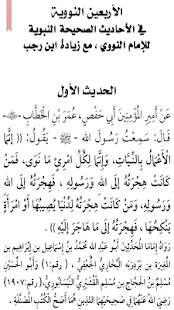 الأربعين النووية
في الأحاديث الصحيحة النبوية
للإمام النووي ، مع زيادة ابن رجب
الحديث الأول
عَنْ أَمِيرِ الْمُؤْمِنِينَ أَبِي حَفْصٍ، عُمَرَ بْنِ الْخَطَّابِ -﵁-
قَالَ: سَمِعْتُ رَسُولَ اللهِ -ﷺ- يَقُولُ: (( إِنَّمَا
الْأَعْمَالُ بِالنِّيَّاتِ، وَإِنَّمَا لِكُلِّ امْرِئٍ مَا نَوَى، فَمَنْ
كَانَتْ هِجْرَتُهُ إِلَى اللهِ وَرَسُولِهِ، فَهِجْرَتُهُ إِلَى اللهِ
وَرَسُولِهِ، وَمَنْ كَانَتْ هِجْرَتُهُ لِدُنْيَا يُصِيبُهَا أَوْ امْرَأَةٍ
يَنْكِحُهَا، فَهِجْرَتُهُ إِلَى مَا هَاجَرَ إِلَيْهِ )).
رَوَاهُ إِمَامَا الْمُحَدِّثِينَ أَبُو عَبْدِ اللهِ مُحَمَّدُ بْنُ إِسْمَاعِيلَ بْنِ إِبْرَاهِيمَ بْنِ
الْمُغِيرَةِ بْنِ بَرْدِزْبَه الْبُخَارِيُّ الْجُعْفِيُّ ، ( رقم:١) وَأَبُو الْحُسَيْنِ
مُسْلِمُ بْنُ الْحَجَّاجِ بْنِ مُسْلِمٍ الْقُشَيْرِيُّ النَّيْسَابُورِيُّ، (رقم:١٩٠٧)
رَضِيَ اللهُ عَنْهُمَا فِي صَحِيحَيْهِمَا اللَّذَيْنِ هُمَا أَصَحُّ الْكُتُبِ الْمُصَنَّفَةِ .